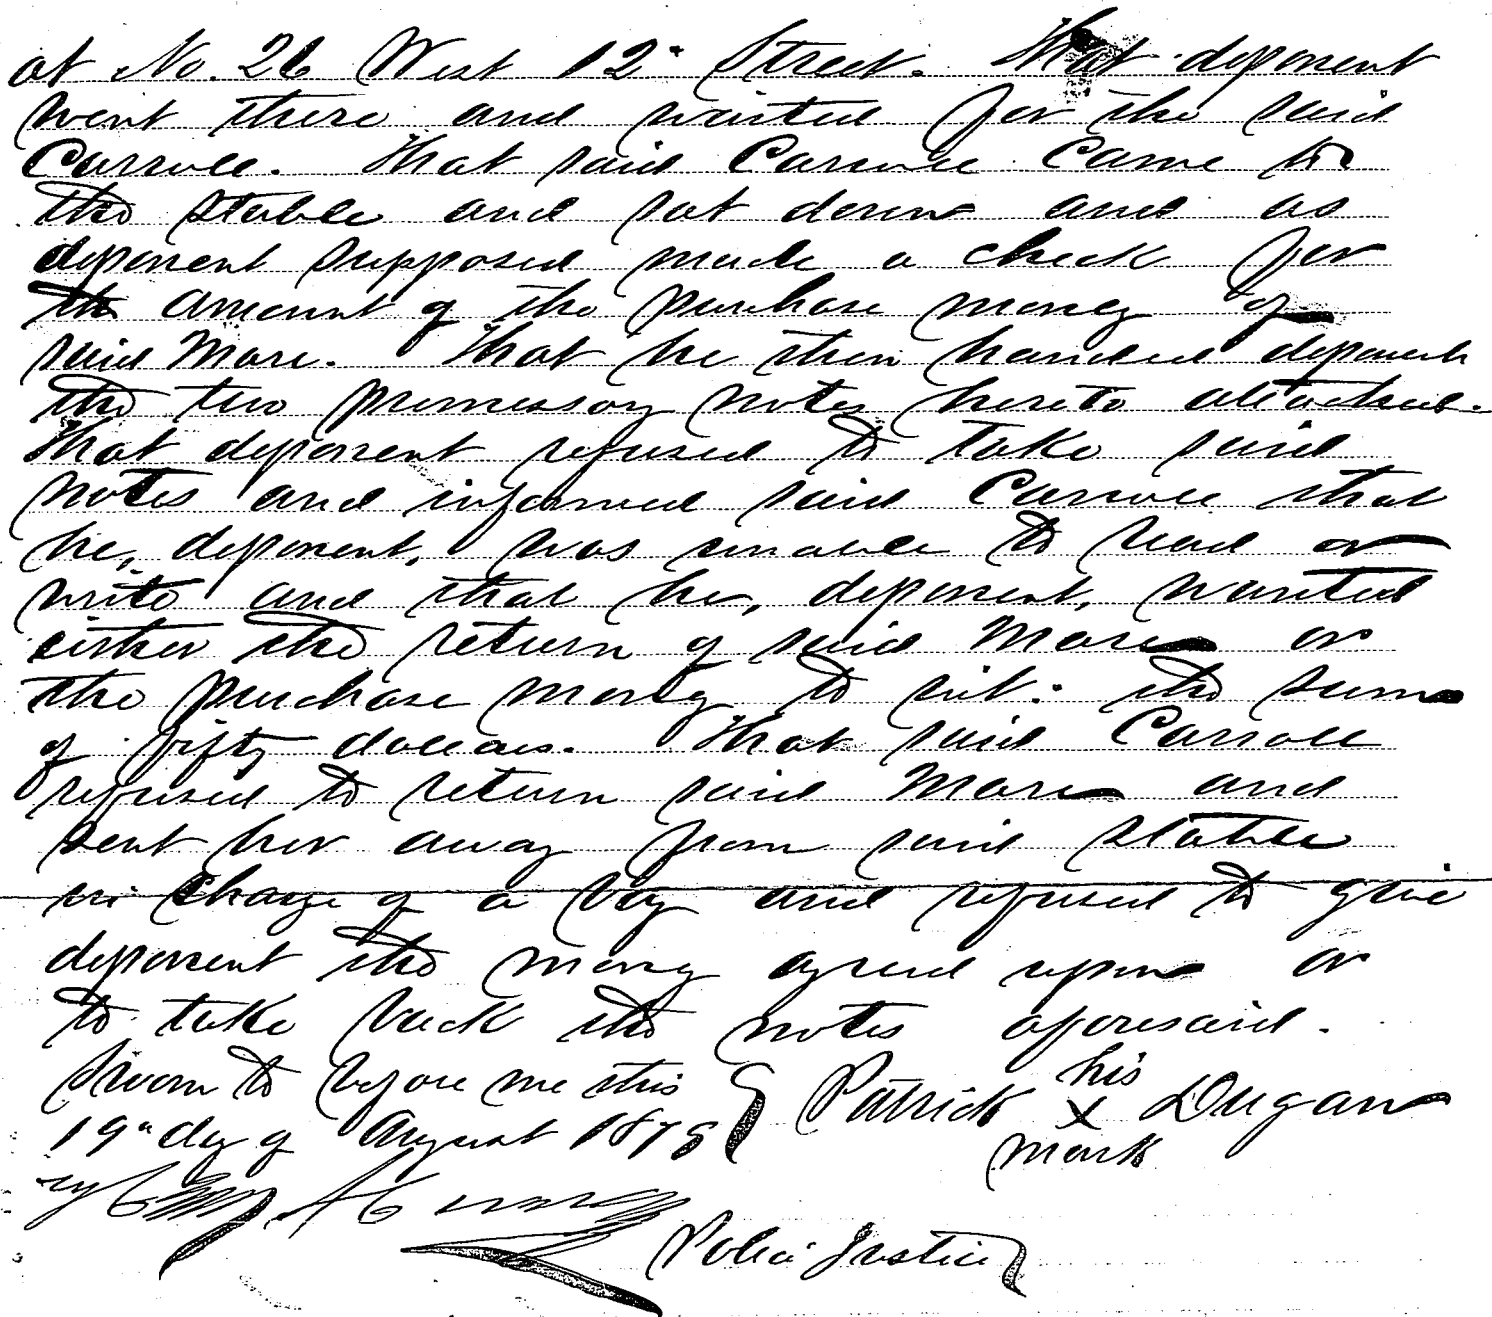 at No. 26 West 12" Street. That deponent
went there and waited for the said
Carroll. That said Carroll Came to
the stable and sat down and as
deponent supposed made a check for
the amount of the purchase money of
said Mare. That he then handed deponent
the two promissory notes hereto attached.
That deponent refused to take said
notes and informed said Carroll that
he, deponent, was unable to read or
write and that he, deponent, wanted
either the return of said Mare or
the purchase money to wit: the sum
of fifty dollars. That said Carroll
refused to return said Mare and
sent her away from said stable
in charge of a boy and refused to give
deponent the money agreed upon or
to take back the notes aforesaid.
Sworn to before me this
19" day of August 187
his
Patrick x Dugan
mark
Police Justice